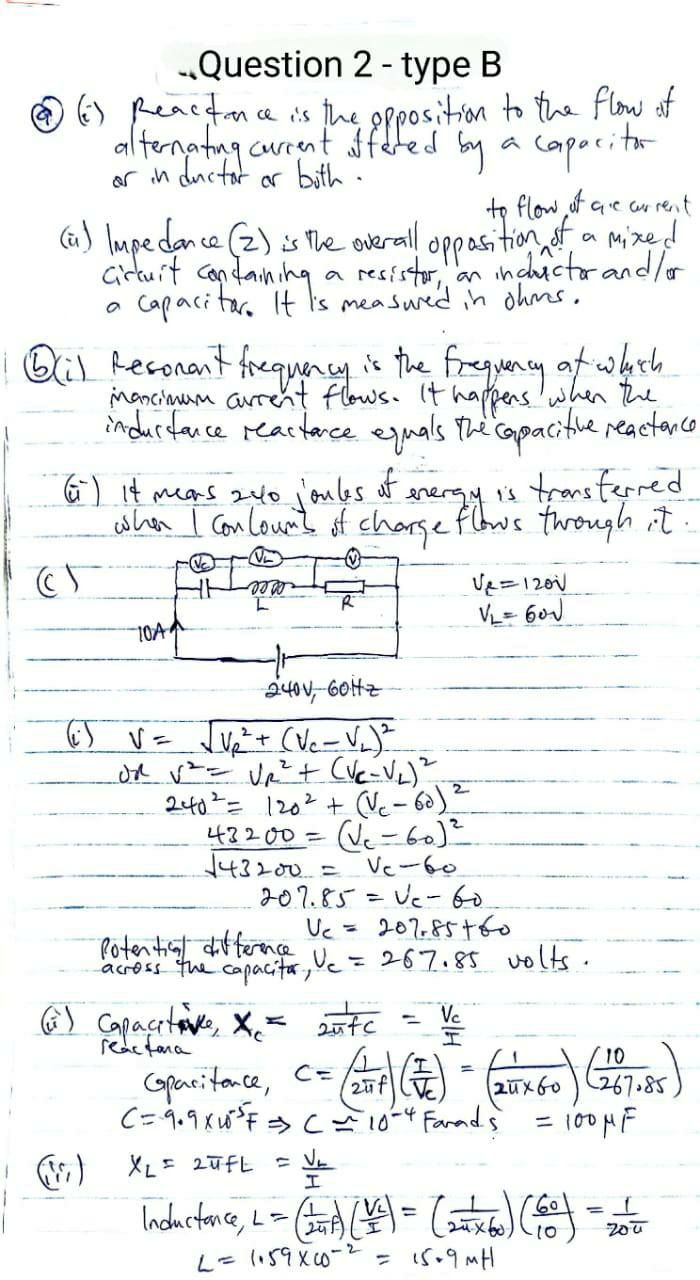 Question 2 - type B
(a) (i) Reactance is the opposition to the flow of
alternating current offered by a capacitor
or inductor or both.
to flow of a.c current
(ii) Impedance (Z) is the overall opposition ^ of a mixed
circuit containing a resistor, an inductor and/or
a capacitor. It is measured in ohms.
(b)(i) Resonant frequency is the frequency at which
maximum current flows. It happens when the
inductance reactance equals the capacitive reactance
(ii) It means 240 joules of energy is transferred
when 1 Coulomb of charge flows through it.
(c)
Vc VL V
L R
VR = 120V
VL = 60V
10A
240V, 60Hz
(i) V = √VR² + (Vc - VL)²
or V² = VR² + (Vc - VL)²
240² = 120² + (Vc - 60)²
43200 = (Vc - 60)²
√43200 = Vc - 60
207.85 = Vc - 60
Vc = 207.85 + 60
Potential difference
across the capacitor, Vc = 267.85 volts.
(ii) Capacitive, Xc = 1/2πfC = Vc/I
reactance
Capacitance, C = (1/2πf)(I/Vc) = (1/2π×60)(10/267.85)
C = 9.9×10⁻⁵F ⇒ C ≃ 10⁻⁴ Farads = 100 μF
(iii) XL = 2πfL = VL/I
Inductance, L = (1/2πf)(VL/I) = (1/2π×60)(60/10) = 1/20π
L = 1.59×10⁻² = 15.9 mH